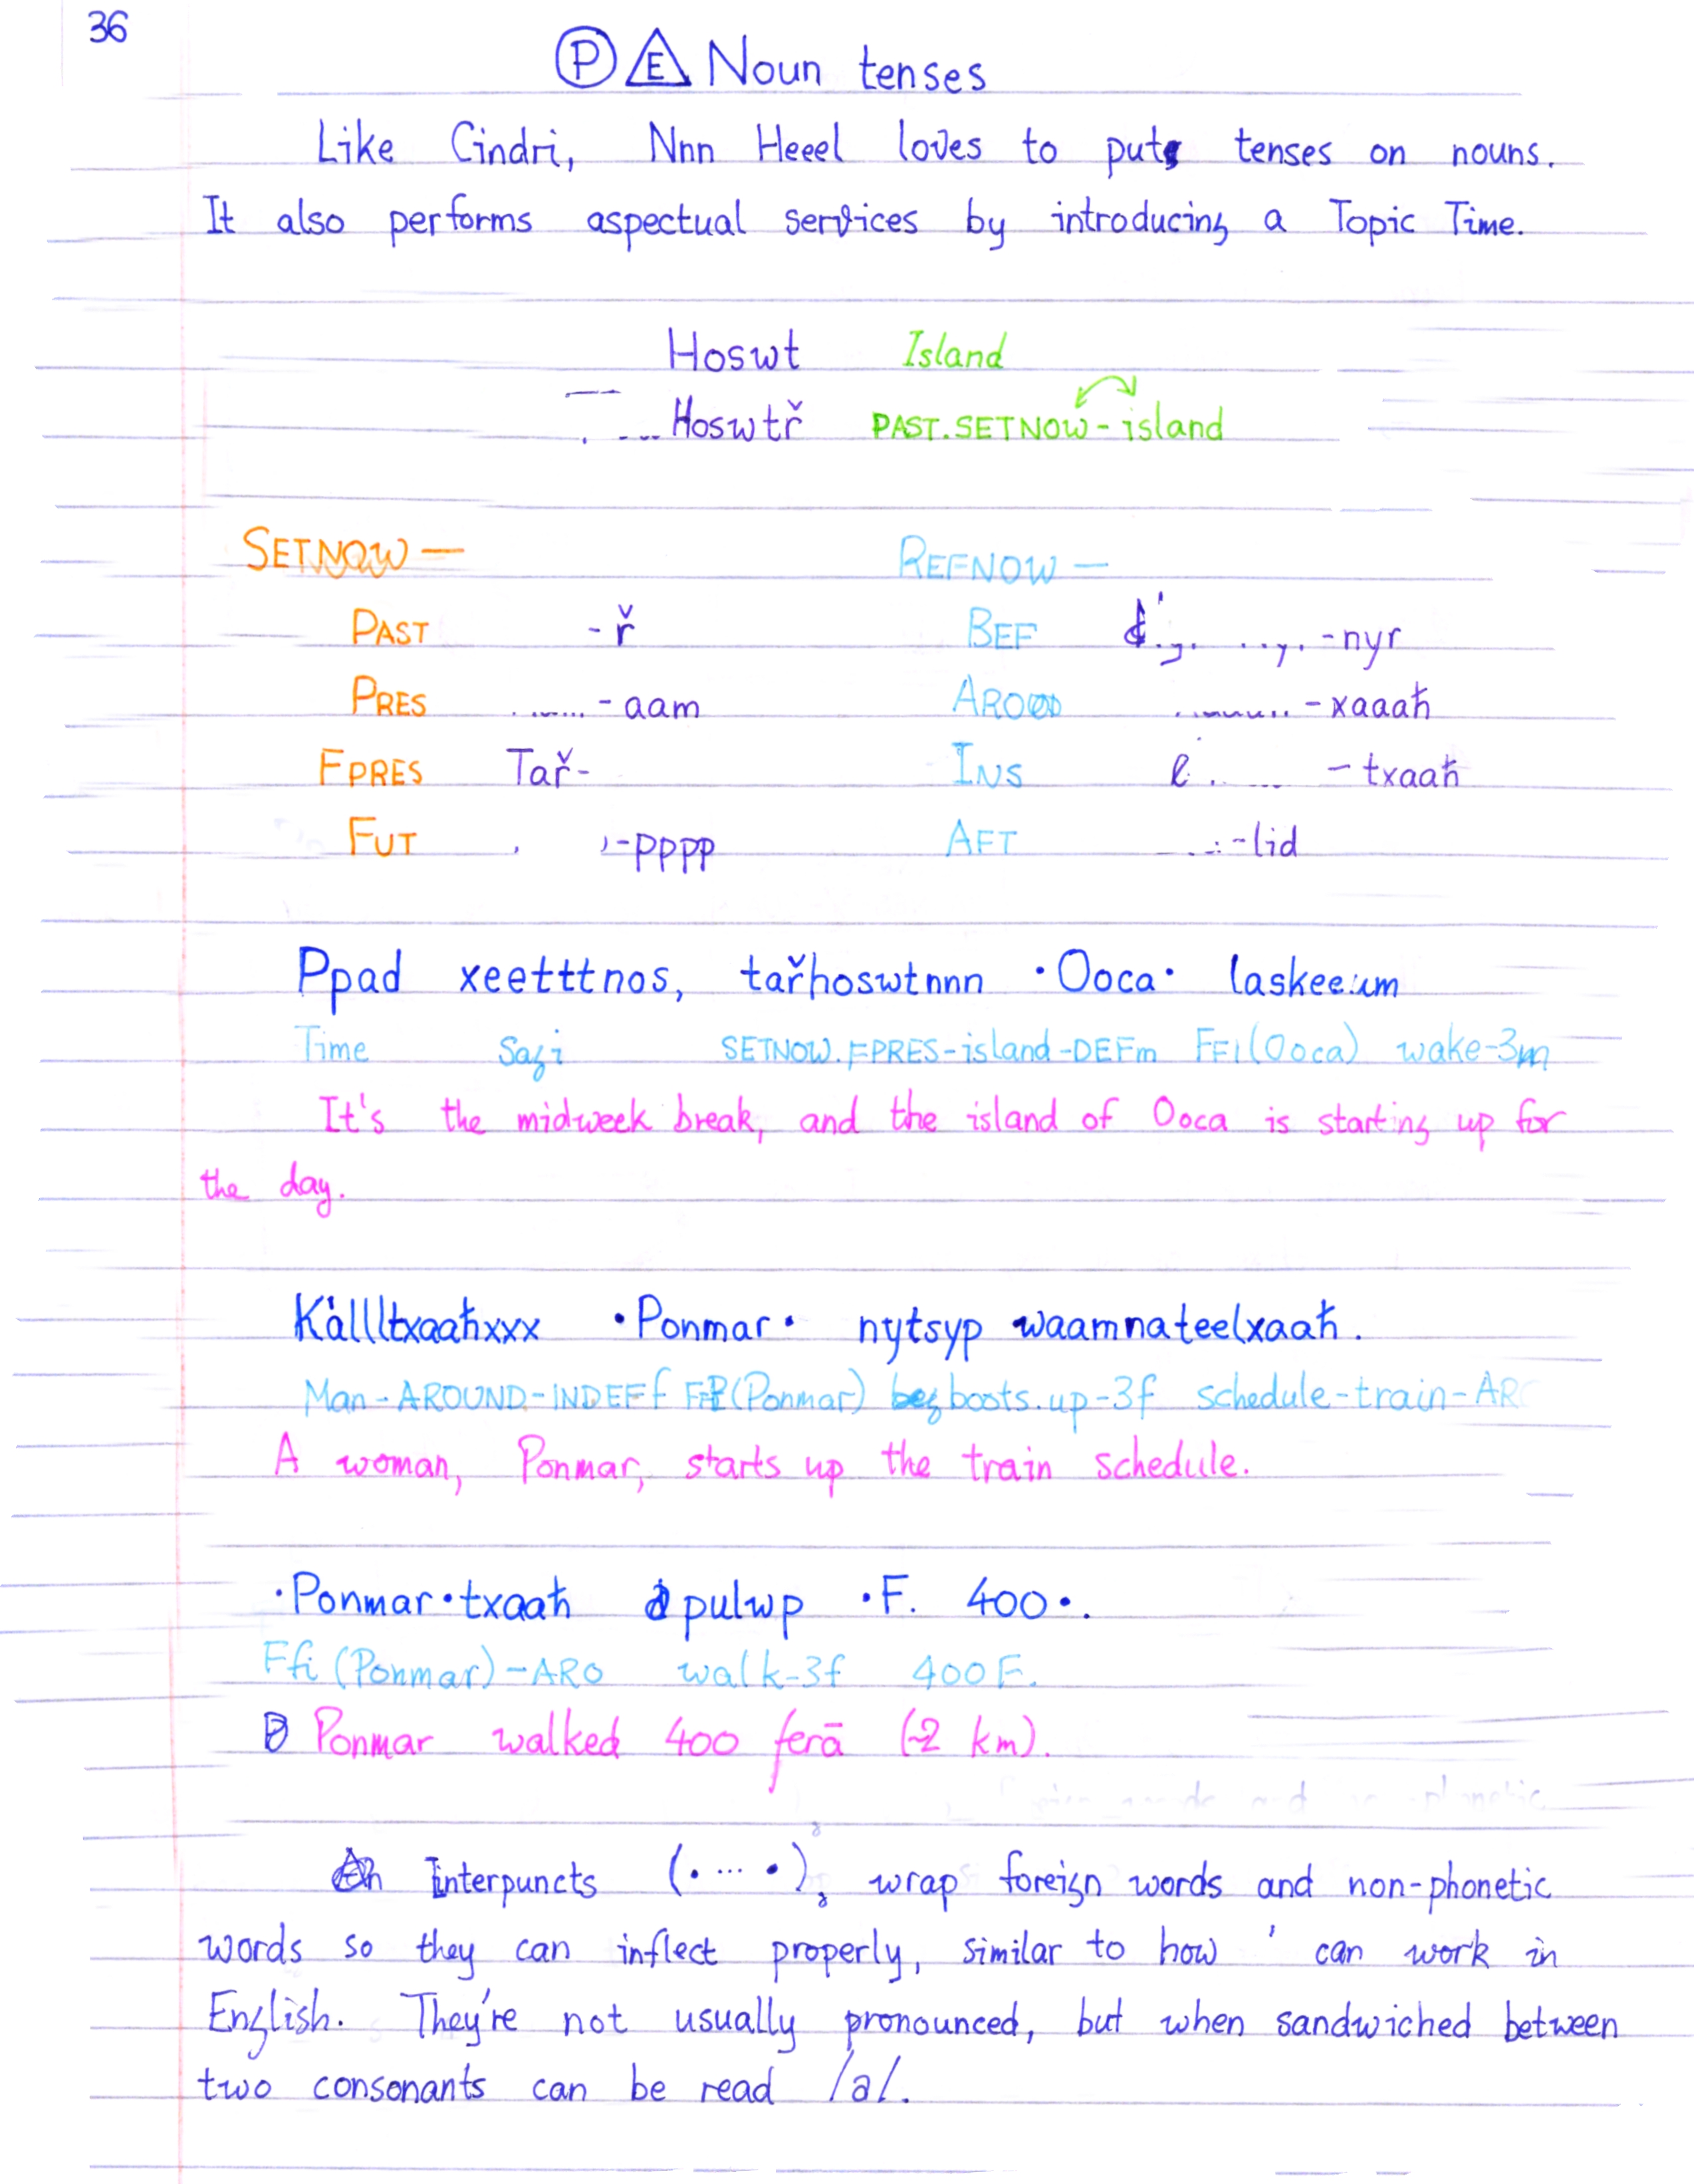 36
P E Noun tenses
Like Cindri, Nnn Heeel loves to put tenses on nouns.
It also performs aspectual services by introducing a Topic Time.
Hoswt Island
Hoswtř PAST.SETNOW-island
SETNOW— REFNOW—
PAST -ř BEF -nyr
PRES -aam ARO -xaaaħ
FPRES Tař- INS -txaaħ
FUT -pppp AFT -lid
Ppad xeetttnos, tařhoswtnnn ·Ooca· laskeeum
Time Sagi SETNOW.FPRES-island-DEFm FFI(Ooca) wake-3m
It's the midweek break, and the island of Ooca is starting up for
the day.
Kållltxaaħxxx ·Ponmar· nytsyp waamnateelxaaħ.
Man-AROUND-INDEFf (Ponmar) boots.up-3f schedule-train-AR
A woman, Ponmar, starts up the train schedule.
·Ponmar·txaaħ pulwp ·F. 400·.
Ffi(Ponmar)-ARO walk-3f 400F.
Ponmar walked 400 ferā (~2 km).
Interpuncts (· ... ·), wrap foreign words and non-phonetic
words so they can inflect properly, similar to how ' can work in
English. They're not usually pronounced, but when sandwiched between
two consonants can be read /ə/.